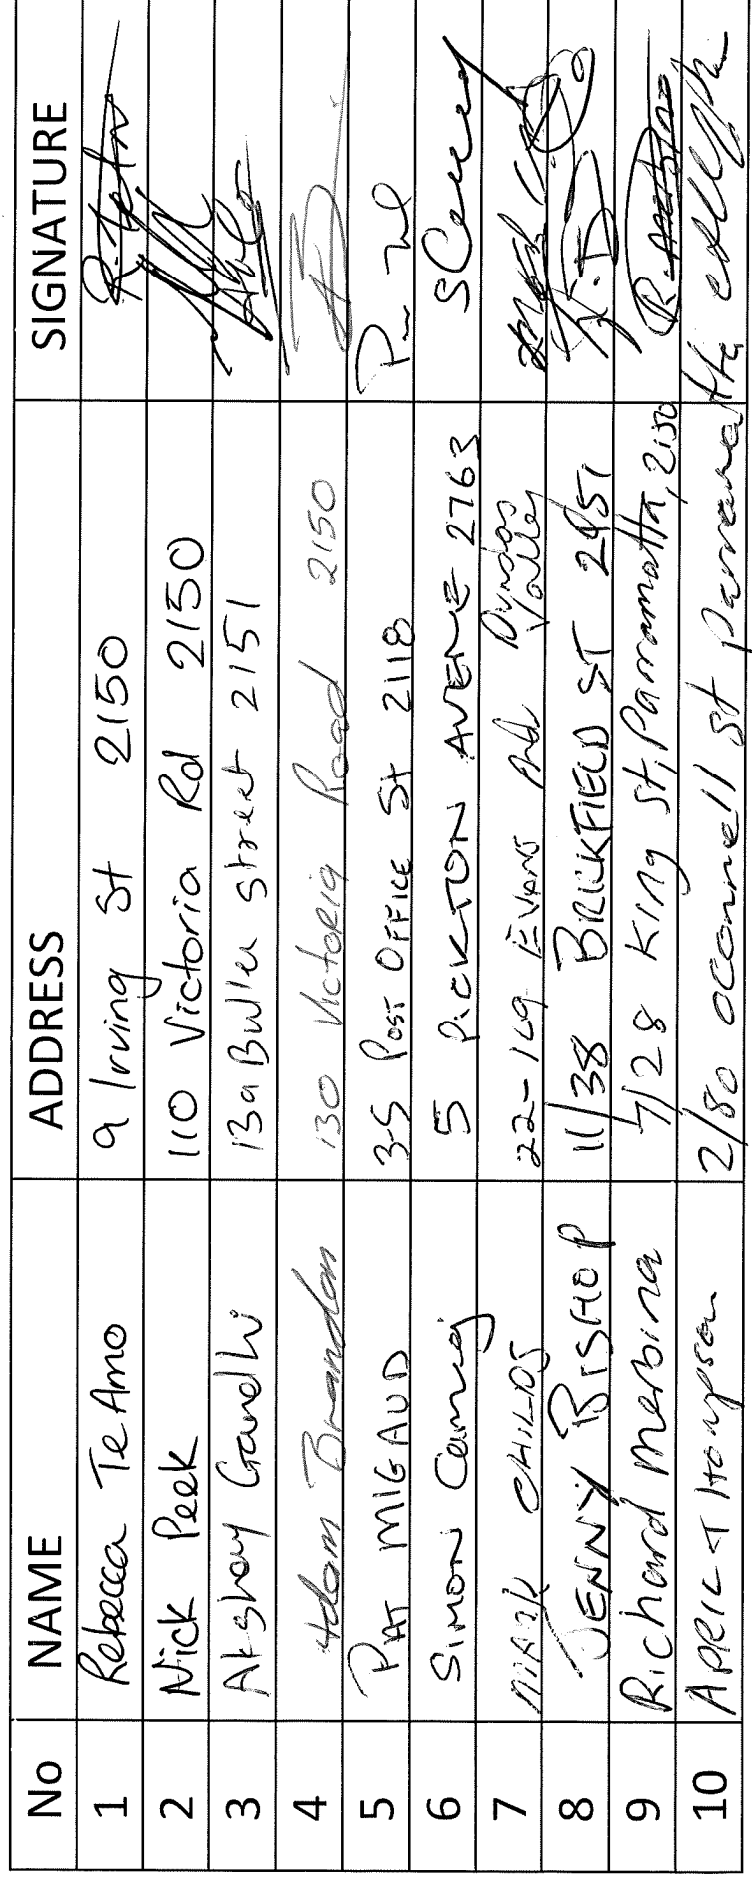 No NAME ADDRESS SIGNATURE
1 Rebecca Te Amo 9 Irving St 2150
2 Nick Peek 110 Victoria Rd 2150
3 Akshay Gandhi 13a Buller street 2151
4 Adam Brandon 130 Victoria Road 2150
5 PAT MIGAUD 3-5 POST OFFICE St 2118
6 SIMON 5 PICKTON AVENE 2763
7 MARK CHILDS 22-169 EVANS Rd Dundas Valley
8 JENNY BISHOP 11/38 BRICKFIELD ST 2151
9 Richard Merbina 7/28 King St, Parramatta, 2150
10 APRIL THompson 2/80 oconnell st parramatta